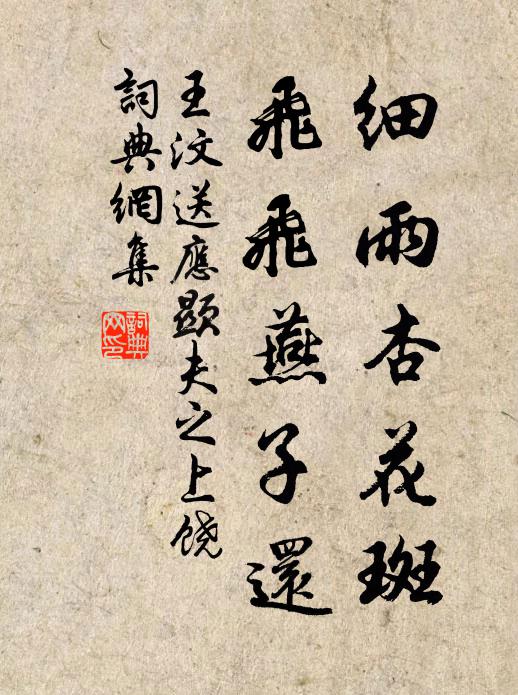 細雨杏花斑
飛飛燕子還
王汶送應顯夫之上饒
詞典網集
詞典網印